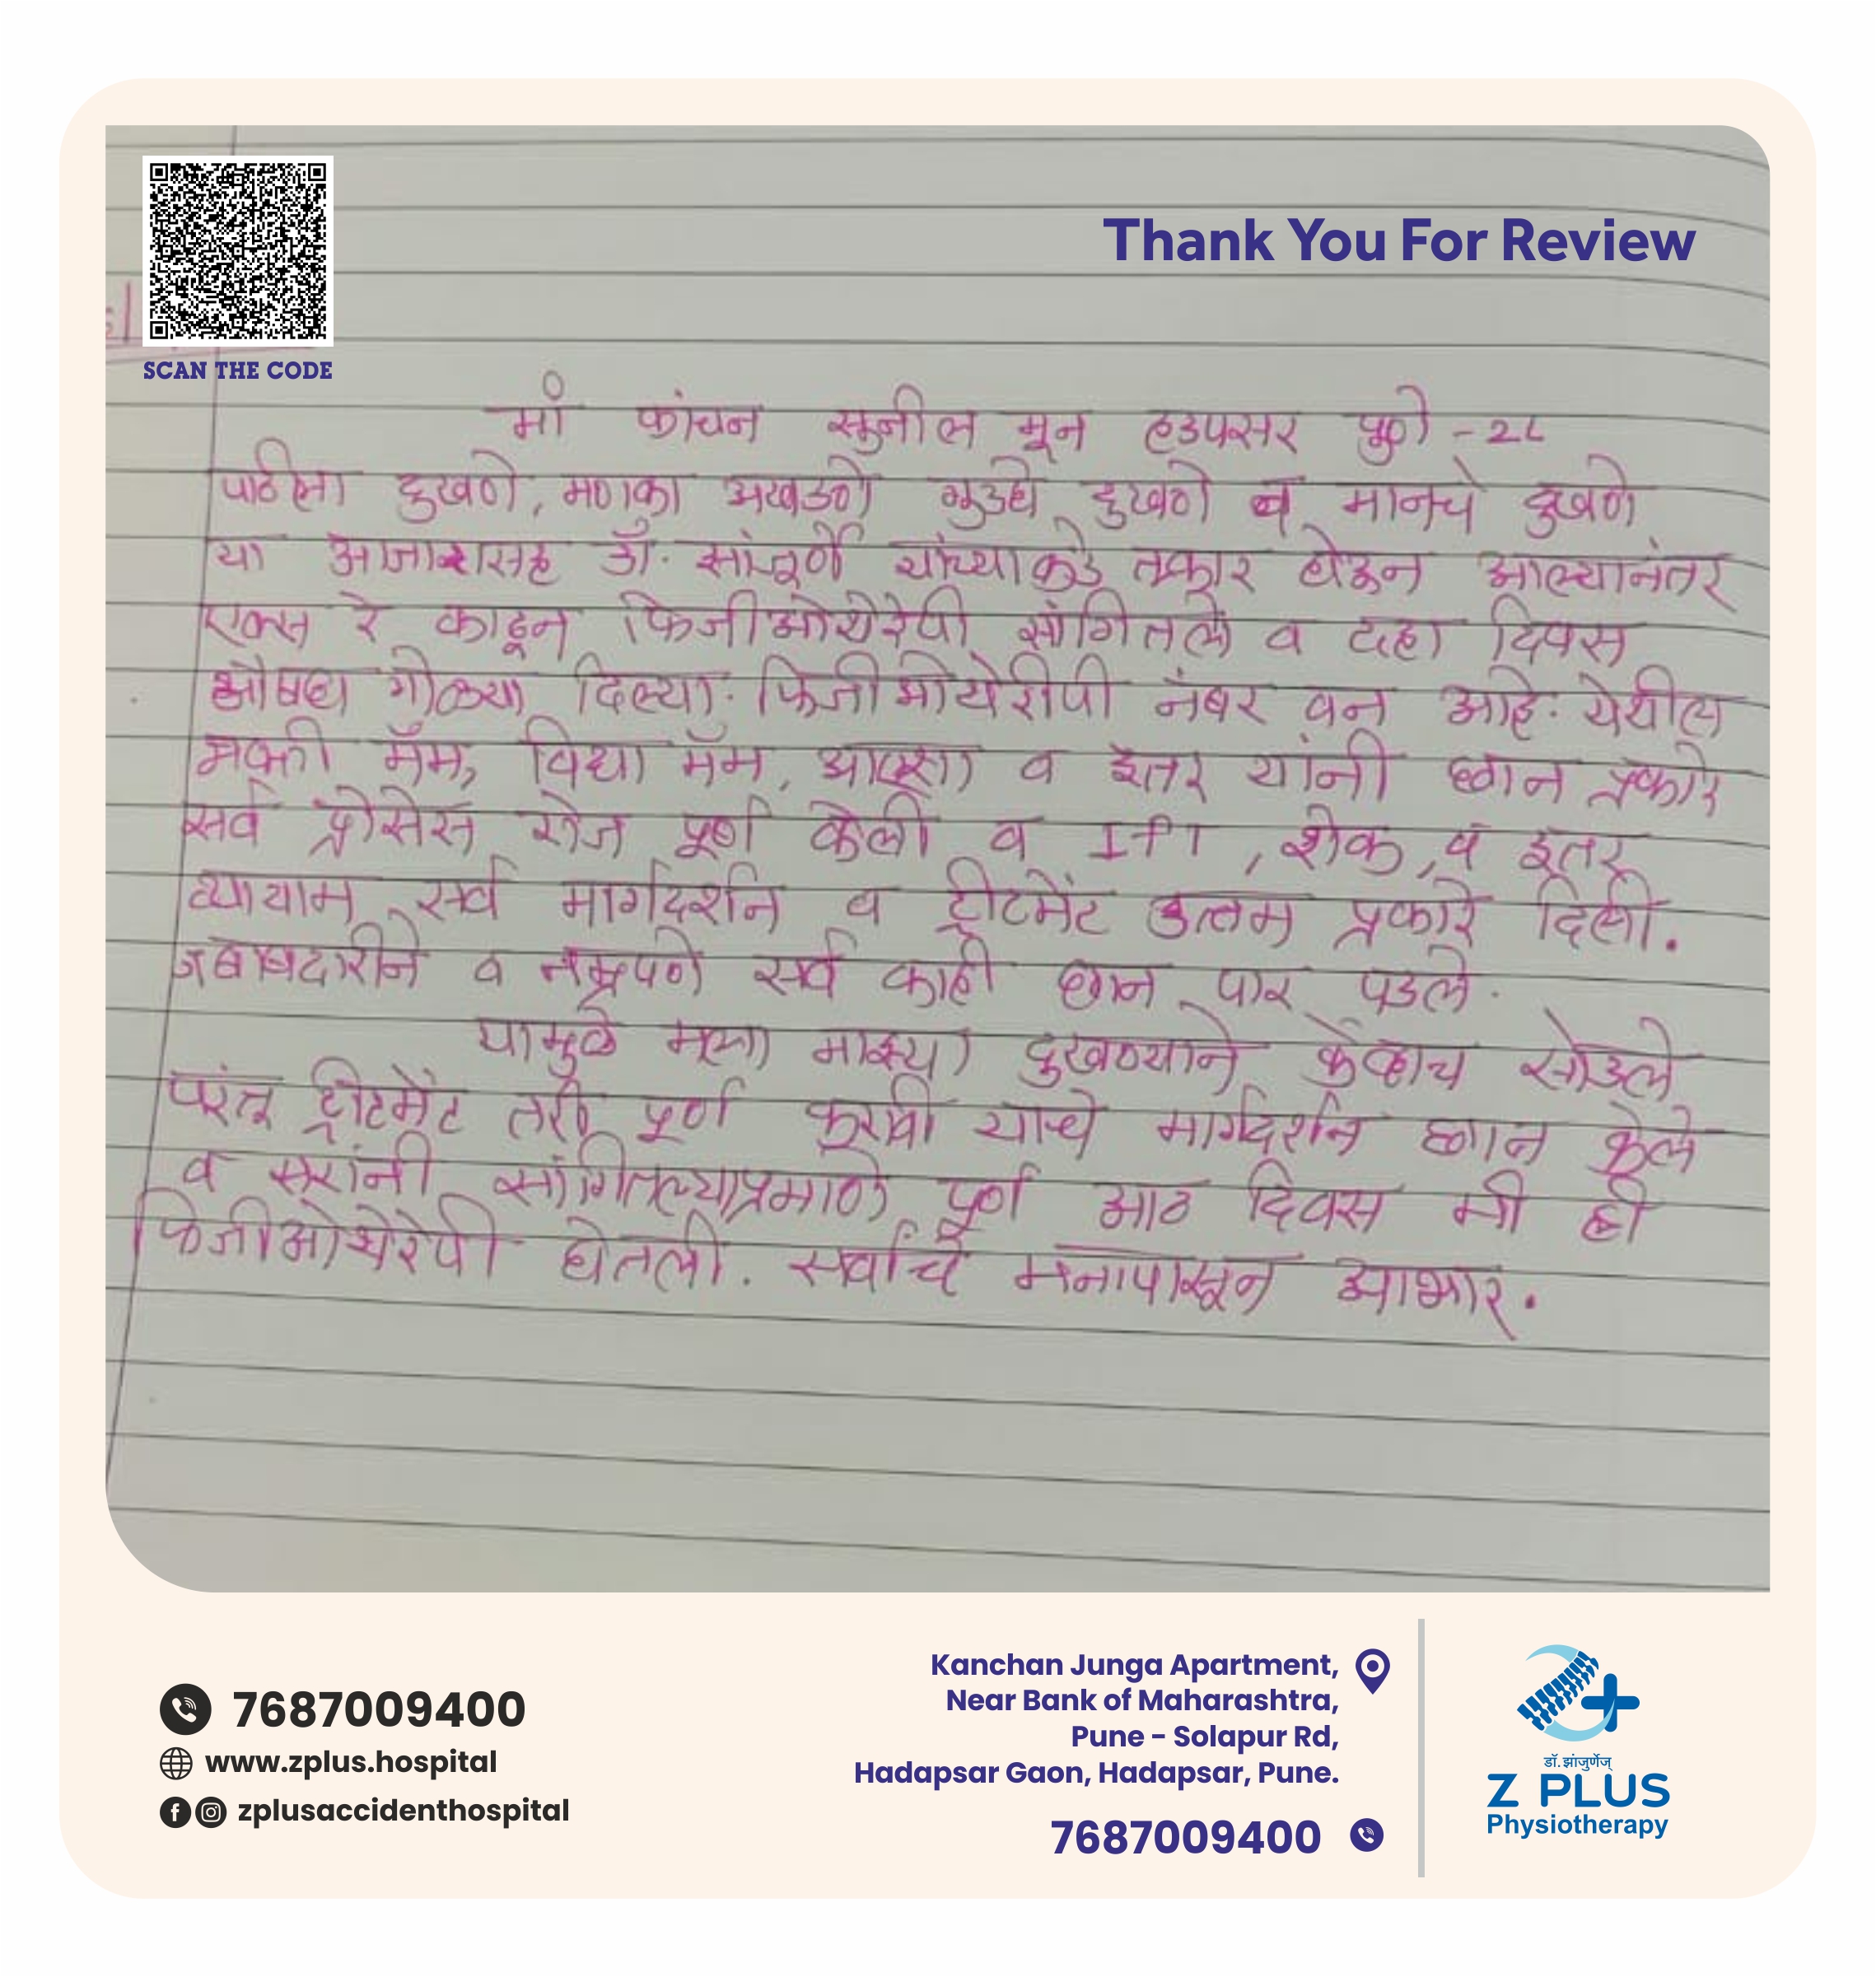 Thank You For Review
SCAN THE CODE
मी कांचन सुनील मून हडपसर पुणे -28
पाठीला दुखणे, मणका अखडणे गुडघे दुखणे व मानचे दुखणे
या आजारासह डॉ. यांच्याकडे तक्रार घेऊन आल्यानंतर
एक्स रे काढून फिजीओथेरेपी सांगितले व दहा दिवस
औषध गोळ्या दिल्या. फिजीओथेरीपी नंबर वन आहे. येथील
मॅम, विद्या मॅम, व इतर यांनी छान प्रकारे
सर्व प्रोसेस रोज पूर्ण केली व IFT, शेक, व इतर
व्यायाम सर्व मार्गदर्शन व ट्रीटमेंट उत्तम प्रकारे दिली.
जबाबदारीने व नम्रपणे सर्व काही छान पार पडले.
यामुळे मला माझ्या दुखण्याने केव्हाच सोडले
परंतू ट्रीटमेंट तरी पूर्ण करावी याचे मार्गदर्शन छान केले
व सरांनी सांगितल्याप्रमाणे पूर्ण आठ दिवस मी ही
फिजीओथेरेपी घेतली. सर्वांचे मनापासून आभार.
7687009400
www.zplus.hospital
zplusaccidenthospital
Kanchan Junga Apartment,
Near Bank of Maharashtra,
Pune - Solapur Rd,
Hadapsar Gaon, Hadapsar, Pune.
7687009400
डॉ. झांजुर्णेज्
Z PLUS
Physiotherapy